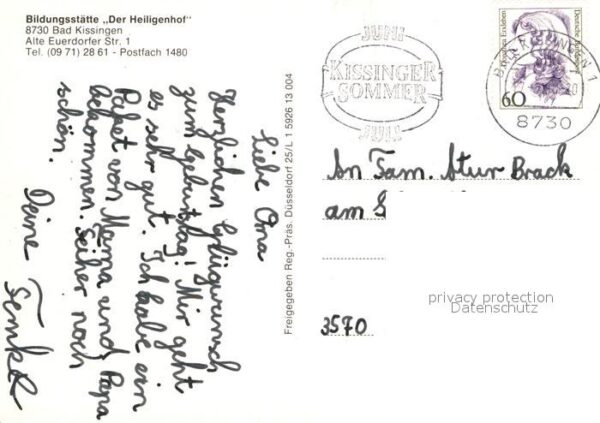 Bildungsstätte „Der Heiligenhof"
8730 Bad Kissingen
Alte Euerdorfer Str. 1
Tel. (09 71) 28 61 - Postfach 1480
Liebe Oma
Herzlichen Glügwunsch
zum Geburtstag! Mir geht
es sehr gut. Ich habe ein
Paket von Mama und Papa
bekommen. Seiher noch
schön.
Deine
Freigegeben Reg.-Präs. Düsseldorf 25/L 1 5926 13 004
JUNI
KISSINGER
SOMMER
JULI
Deutsche Bundespost
60
BAD KISSINGEN 1
8730
An Fam. Atur Brack
am
privacy protection
Datenschutz
3570